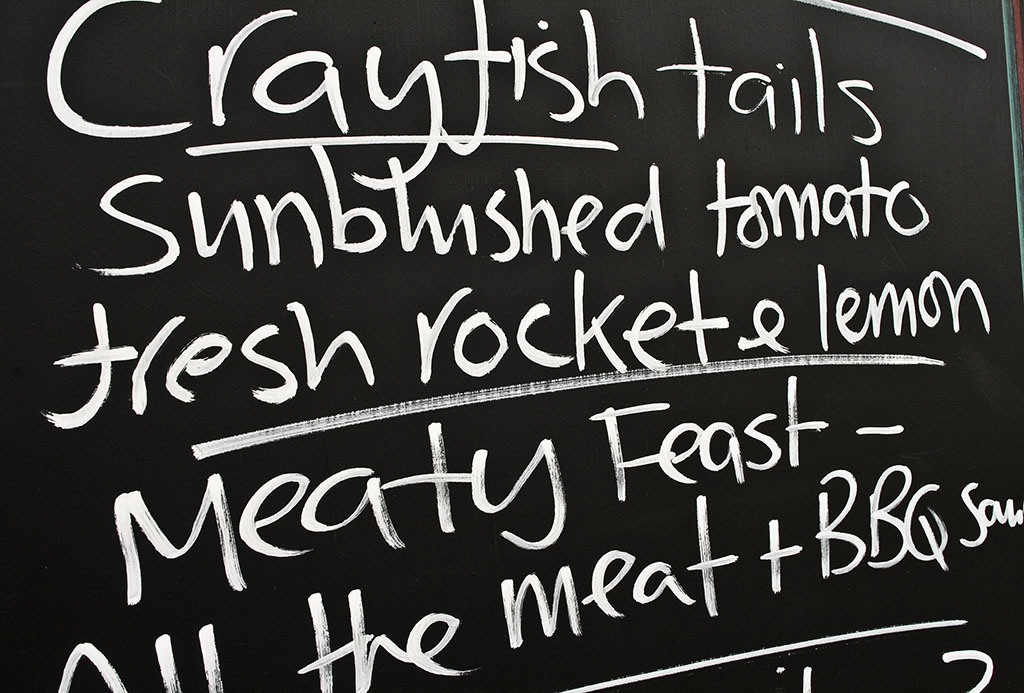 Crayfish tails
Sunblushed tomato
fresh rocket & lemon
Meaty Feast -
All the meat + BBQ